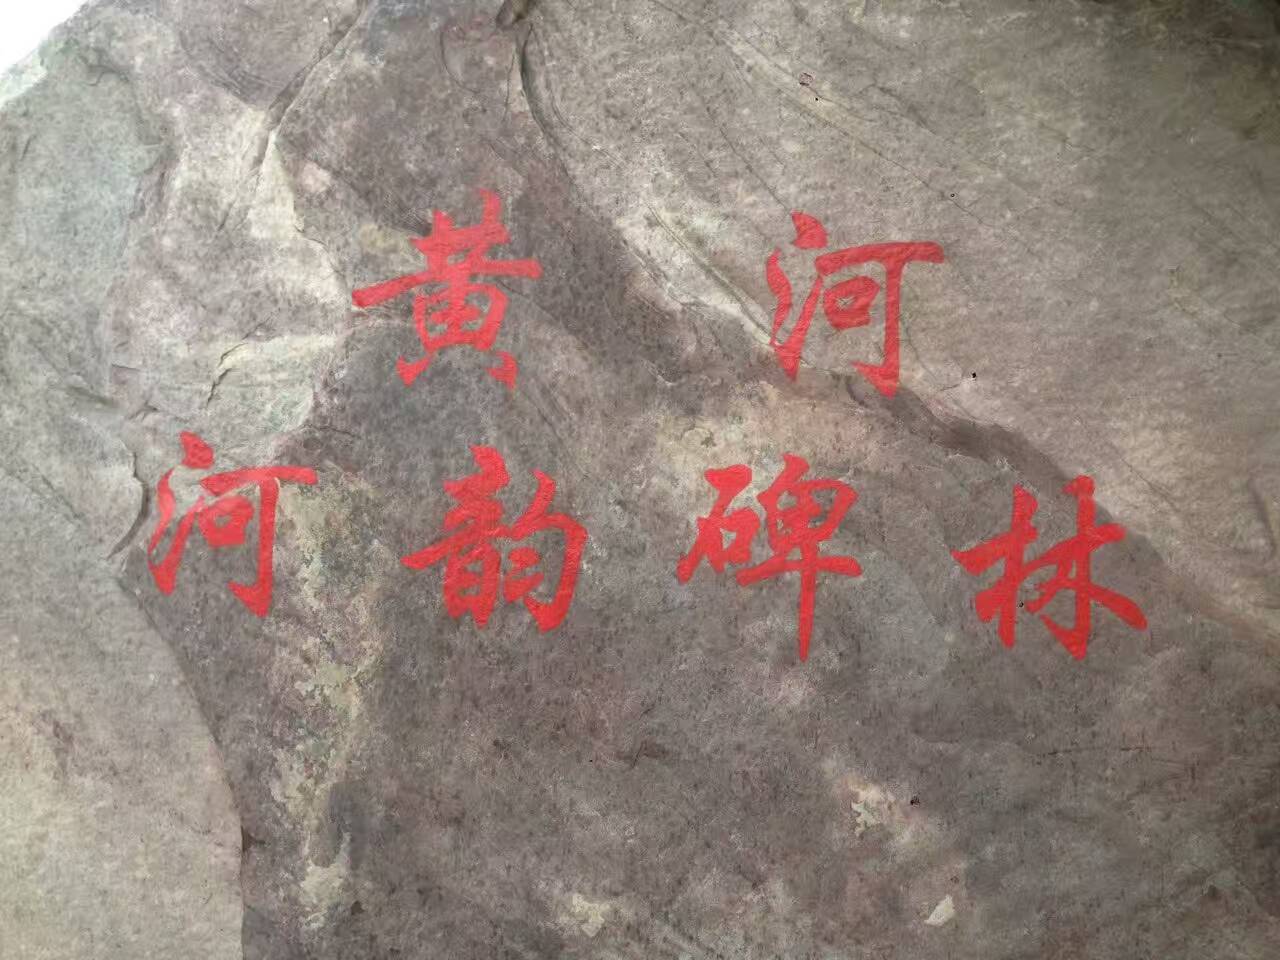 黄河
河韵碑林